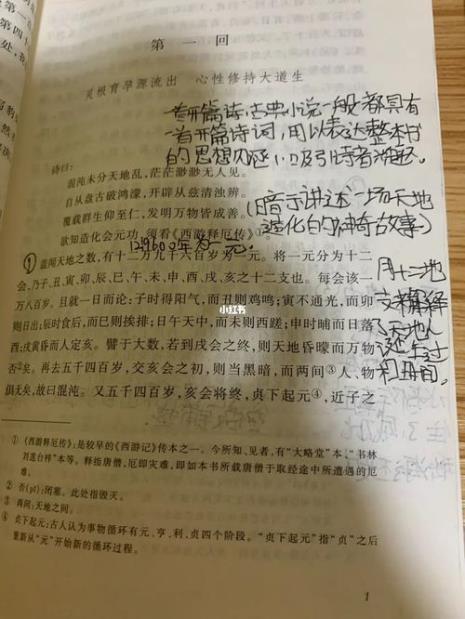 第一回
灵根育孕源流出 心性修持大道生
首开篇诗:古典小说一般都具有
一首开篇诗词,用以表达整本书
的思想
诗曰:
混沌未分天地乱,茫茫渺渺无人见。
自从盘古破鸿蒙,开辟从兹清浊辨。
覆载群生仰至仁,发明万物皆成善。
(暗示讲述一场天地
欲知造化会元功,须看《西游释厄传》①
造化的神奇故事)
129600年为一元.
①盖闻天地之数,有十二万九千六百岁为一元。将一元分为十二
会,乃子、丑、寅、卯、辰、巳、午、未、申、酉、戌、亥之十二支也。每会该一
万八百岁。且就一日而论:子时得阳气,而丑则鸡鸣;寅不通光,而卯
则日出;辰时食后,而巳则挨排;日午天中,而未则西蹉;申时晡而日落
酉;戌黄昏而人定亥。譬于大数,若到戌会之终,则天地昏曚而万物
否②矣。再去五千四百岁,交亥会之初,则当黑暗,而两间③人、物
俱无矣,故曰混沌。又五千四百岁,亥会将终,贞下起元④,近子之
用十二地
支来解释
了天地人
诞生过
小红书
①《西游释厄传》:是较早的《西游记》传本之一。今所知、见者,有“大略堂”本、“书林
刘莲台梓”本等。释指唐僧,厄即灾难,即如本书所载唐僧于取经途中所遭遇的厄
难。
② 否(pǐ):闭塞。此处指毁灭。
③ 两间:天地之间。
④ 贞下起元:古人认为事物循环有元、亨、利、贞四个阶段。“贞下起元”指“贞”之后
重新从“元”开始新的循环过程。
1